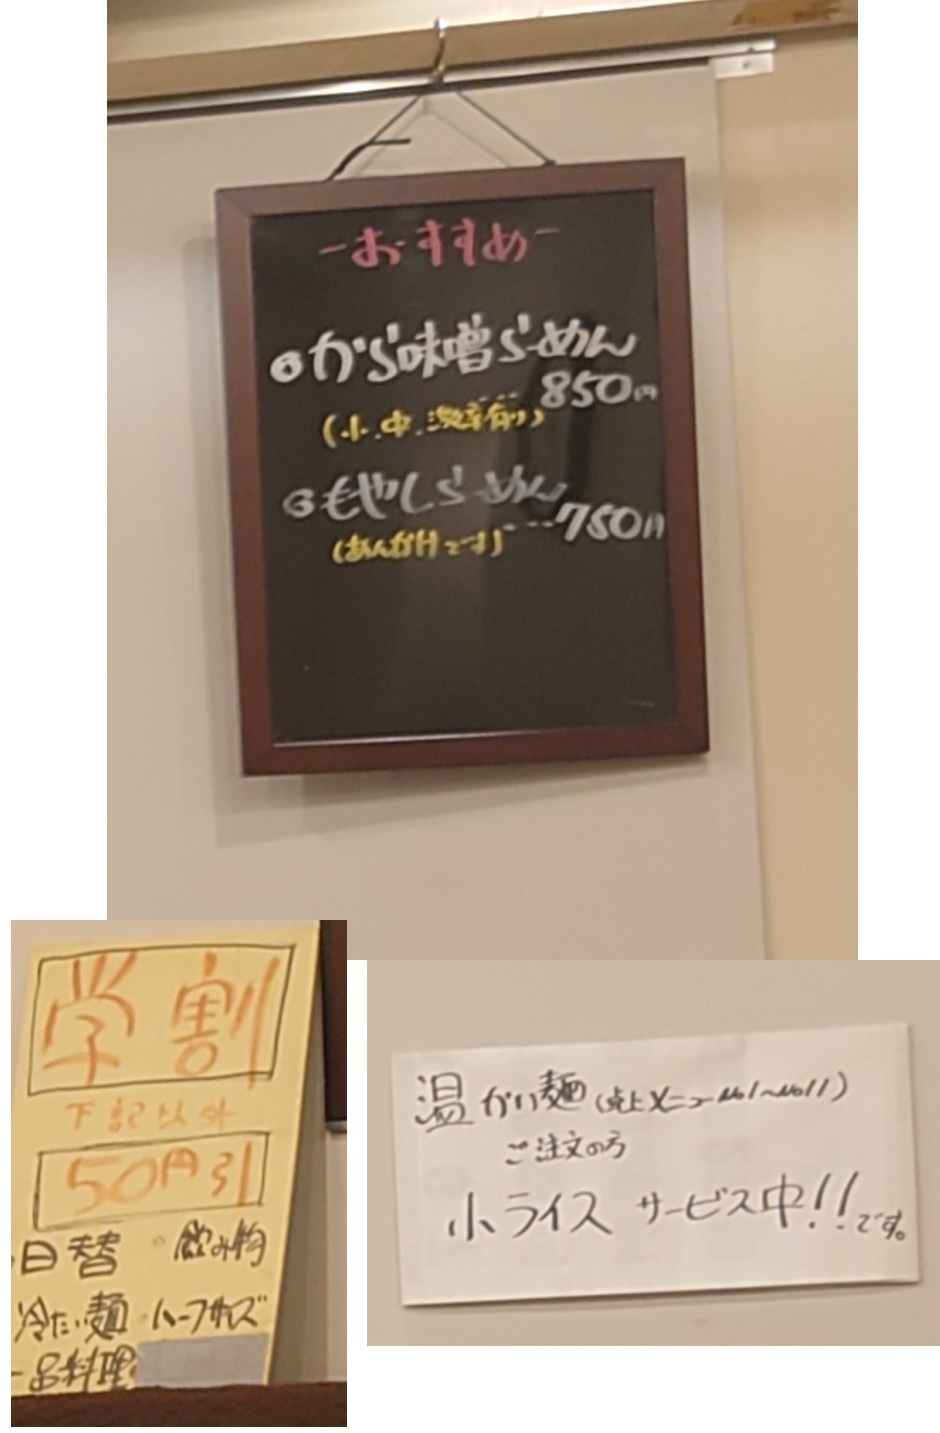 -おすすめ-
●から味噌らーめん
---850円
(小.中.激辛有り)
●もやしらーめん
---750円
(あんかけです)
学割
下記以外
50円引
・日替 ・飲み物
冷たい麺 ・ハーフサイズ
一品料理
温かい麺(卓上メニューNo1~No11)
ご注文の方
小ライス サービス中!!です。